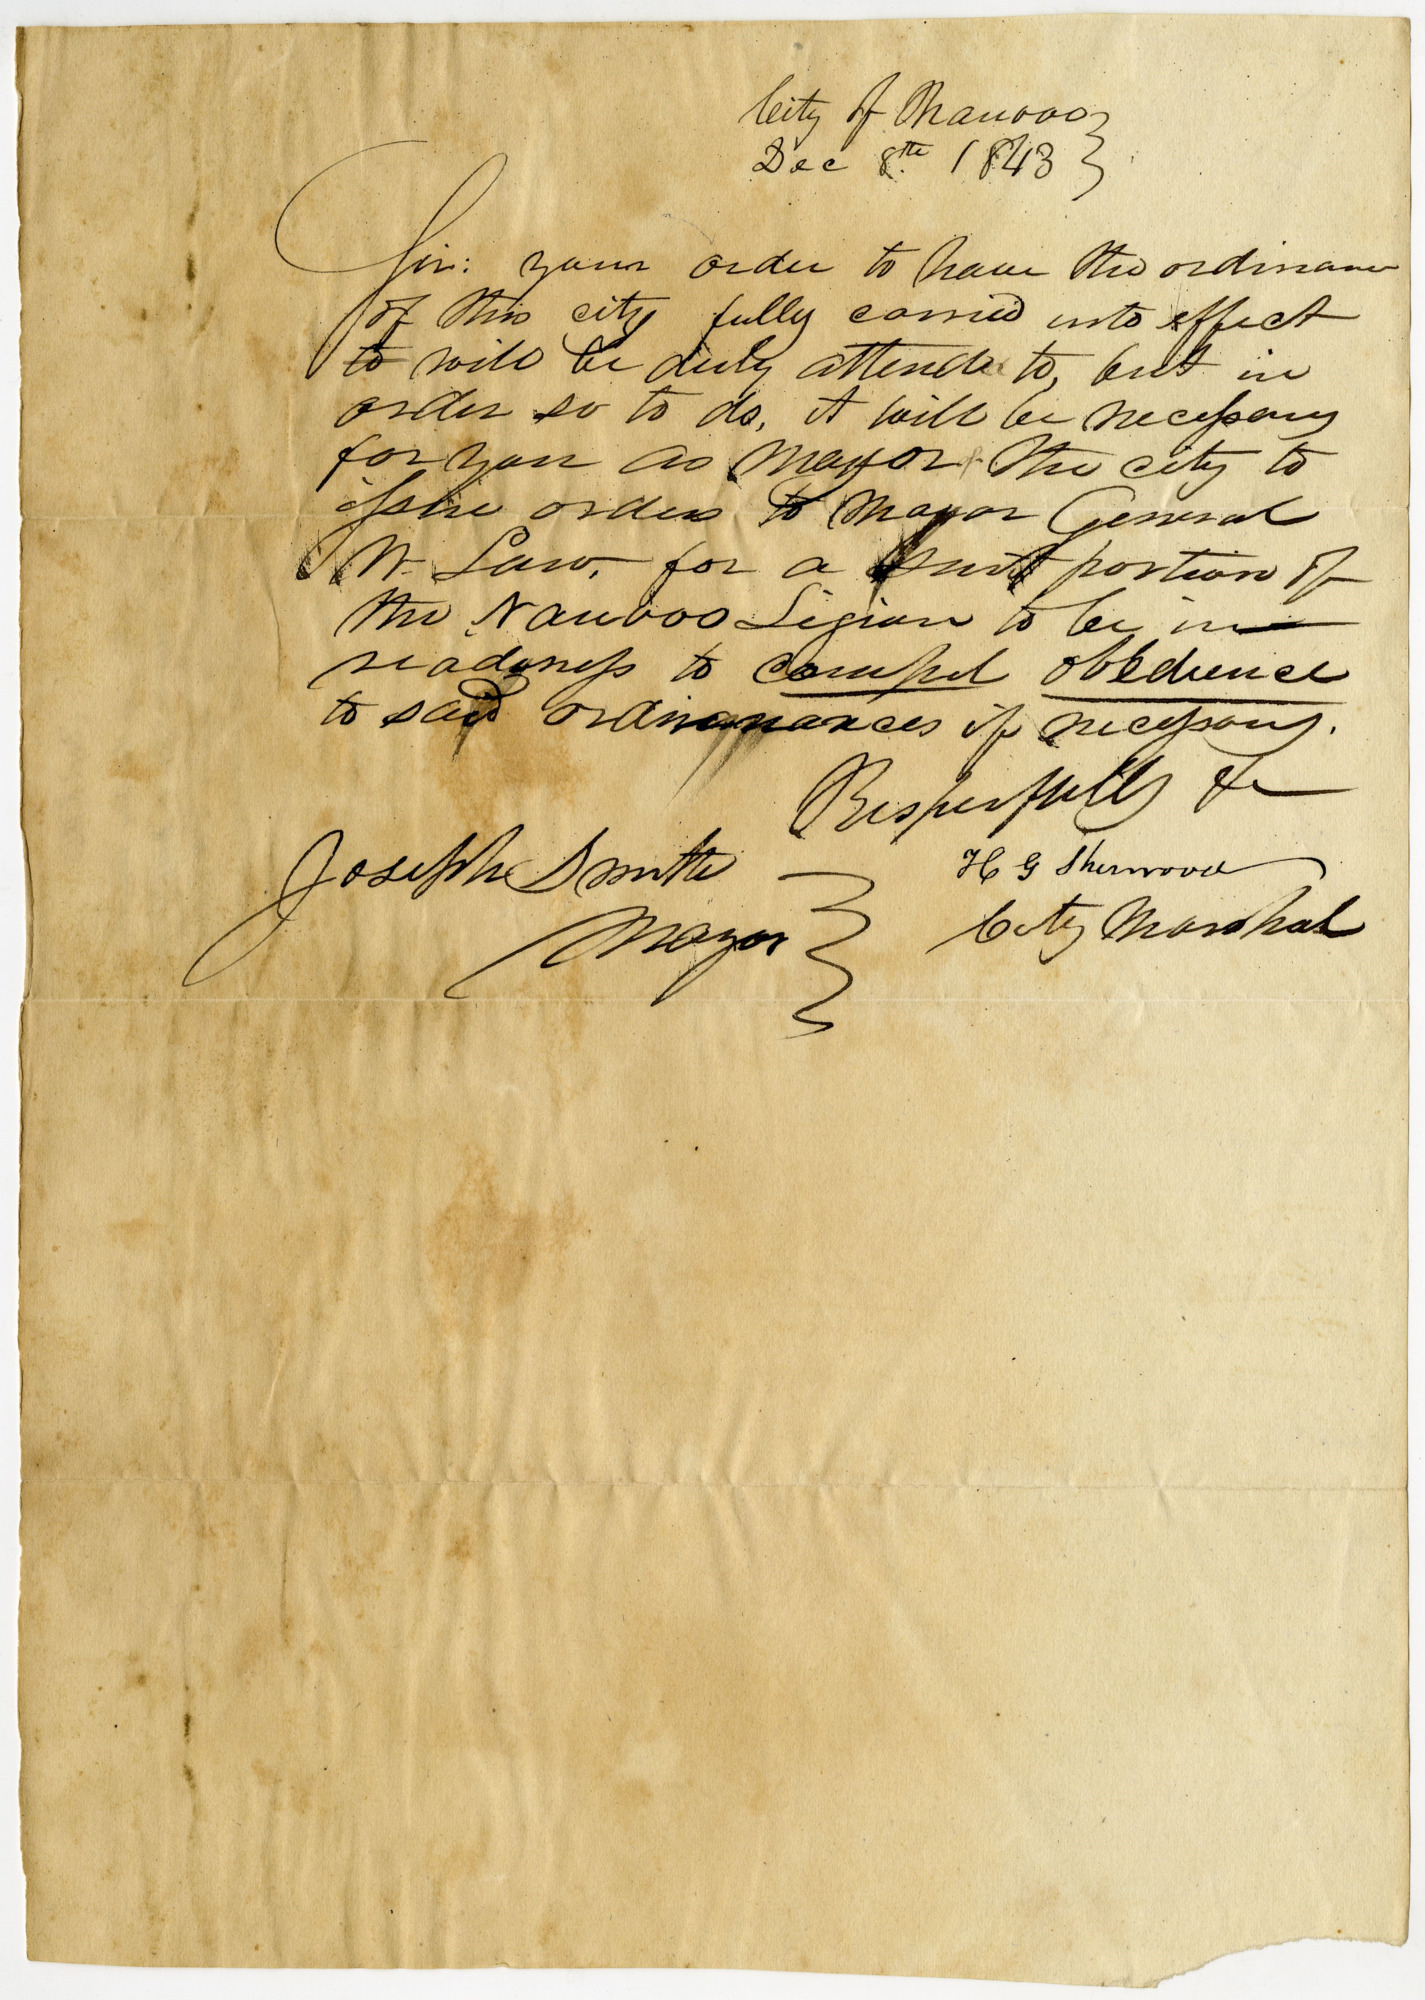 City of Nauvoo
Dec 8th 1843
Sir: your order to have the ordinance
of this city fully carried into effect
to will be duly attended to, but in
order so to do, it will be necessary
for you as Mayor of the city to
issue orders to Mayor General
W. Law, for a portion of
the Nauvoo Legion to be in
readyness to compel obedience
to said ordinanances if necessary.
Respectfully &c
H G Sherwood
City Marshal
Joseph Smith
Mayor